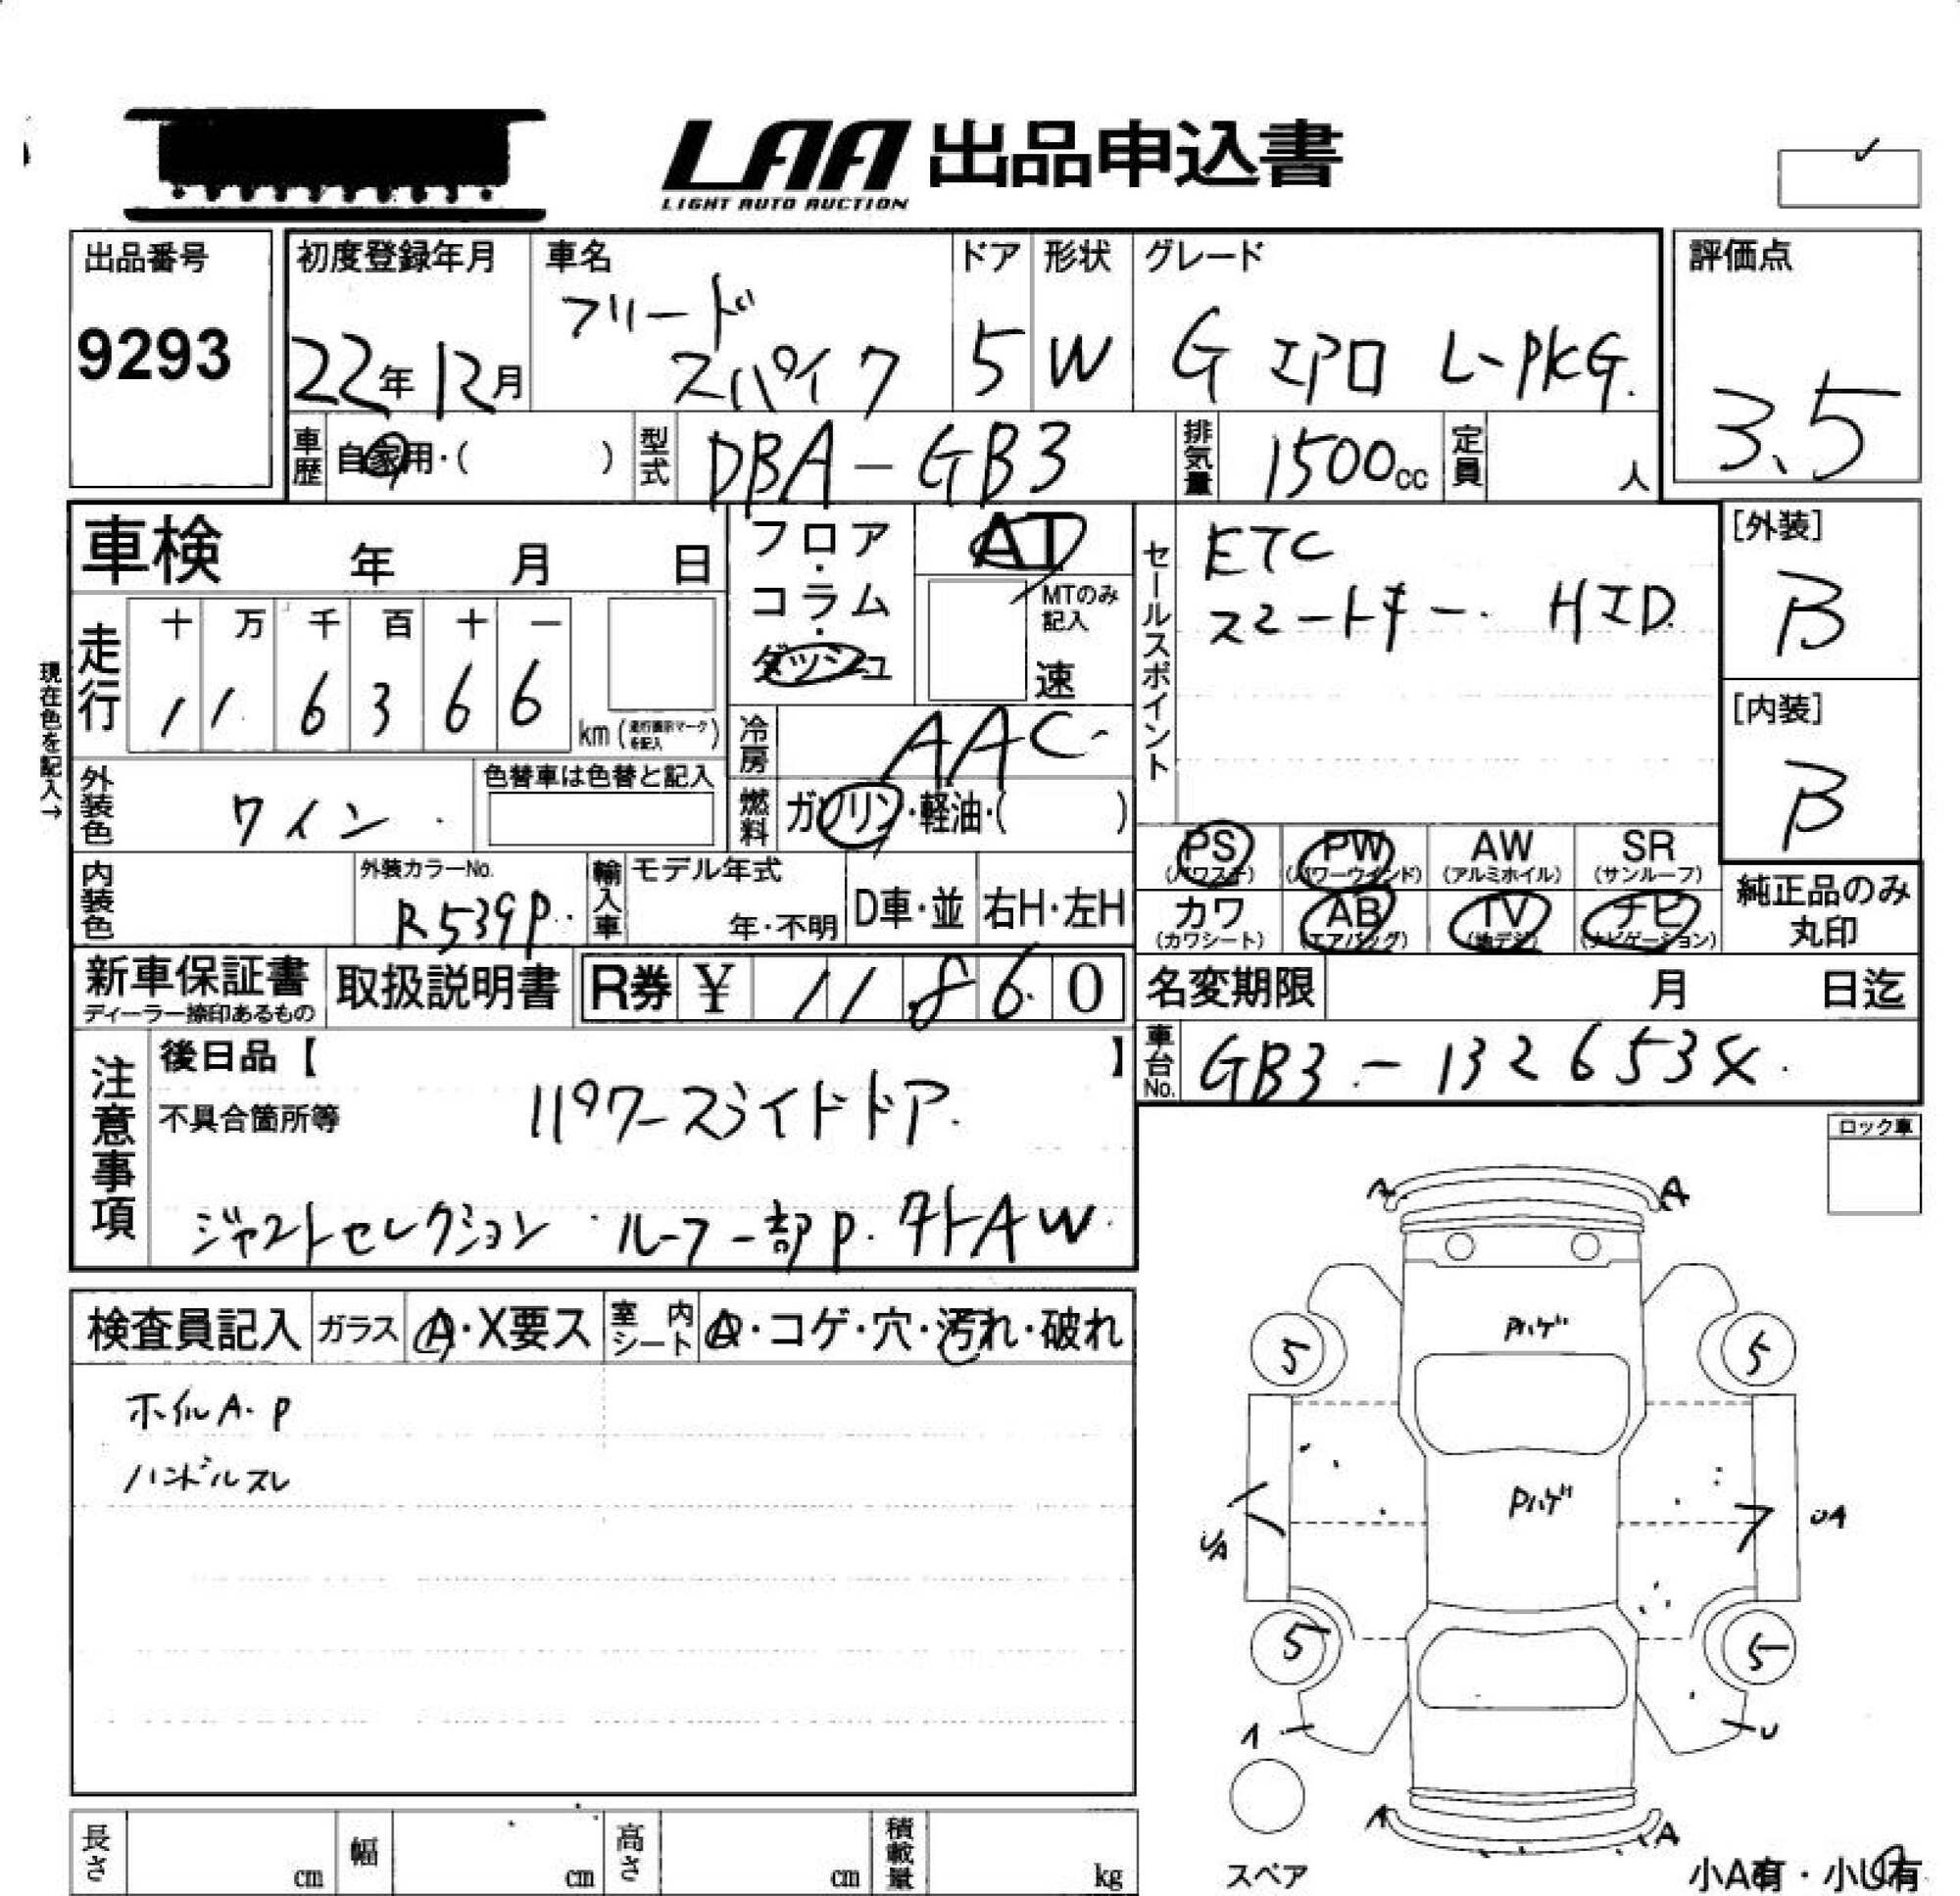 LAA 出品申込書
LIGHT AUTO AUCTION
出品番号
9293
初度登録年月
22年12月
車名
フリード
スパイク
ドア
5
形状
W
グレード
G エアロ L-PKG.
評価点
3.5
車歴
自家用・( )
型式
DBA-GB3
排気量
1500cc
定員
人
車検 年 月 日
フロア・コラム・ダッシュ
AT
MTのみ記入
速
セールスポイント
ETC
スマートキー. HID
[外装]
B
[内装]
B
現在色を記入→
走行
十 万 千 百 十 一
1 1 6 3 6 6
km (走行表示マークを記入)
冷房
AAC
燃料
ガソリン・軽油・( )
外装色
ワイン
色替車は色替と記入
内装色
外装カラーNo.
R539P
輸入車
モデル年式
年・不明
D車・並
右H・左H
PS
(パワステ)
PW
(パワーウインド)
AW
(アルミホイル)
SR
(サンルーフ)
カワ
(カワシート)
AB
(エアバッグ)
TV
(地デジ)
ナビ
(ナビゲーション)
純正品のみ
丸印
新車保証書
ディーラー捺印あるもの
取扱説明書
R券 ¥ 1 1 8 6 0
名変期限 月 日迄
車台No.
GB3-1326534
注意事項
後日品【 】
不具合箇所等
パワースライドドア
ジャストセレクション ルーフ一部P. 外AW
ロック車
検査員記入
ガラス
A・X要ス
室内シート
A・コゲ・穴・汚れ・破れ
ホイルA.P
ハンドルスレ
A A
Pハゲ
5 5
Pハゲ
UA UA
5 5
1 U
A A
スペア
小A有・小U有
長さ cm
幅 cm
高さ cm
積載量 kg